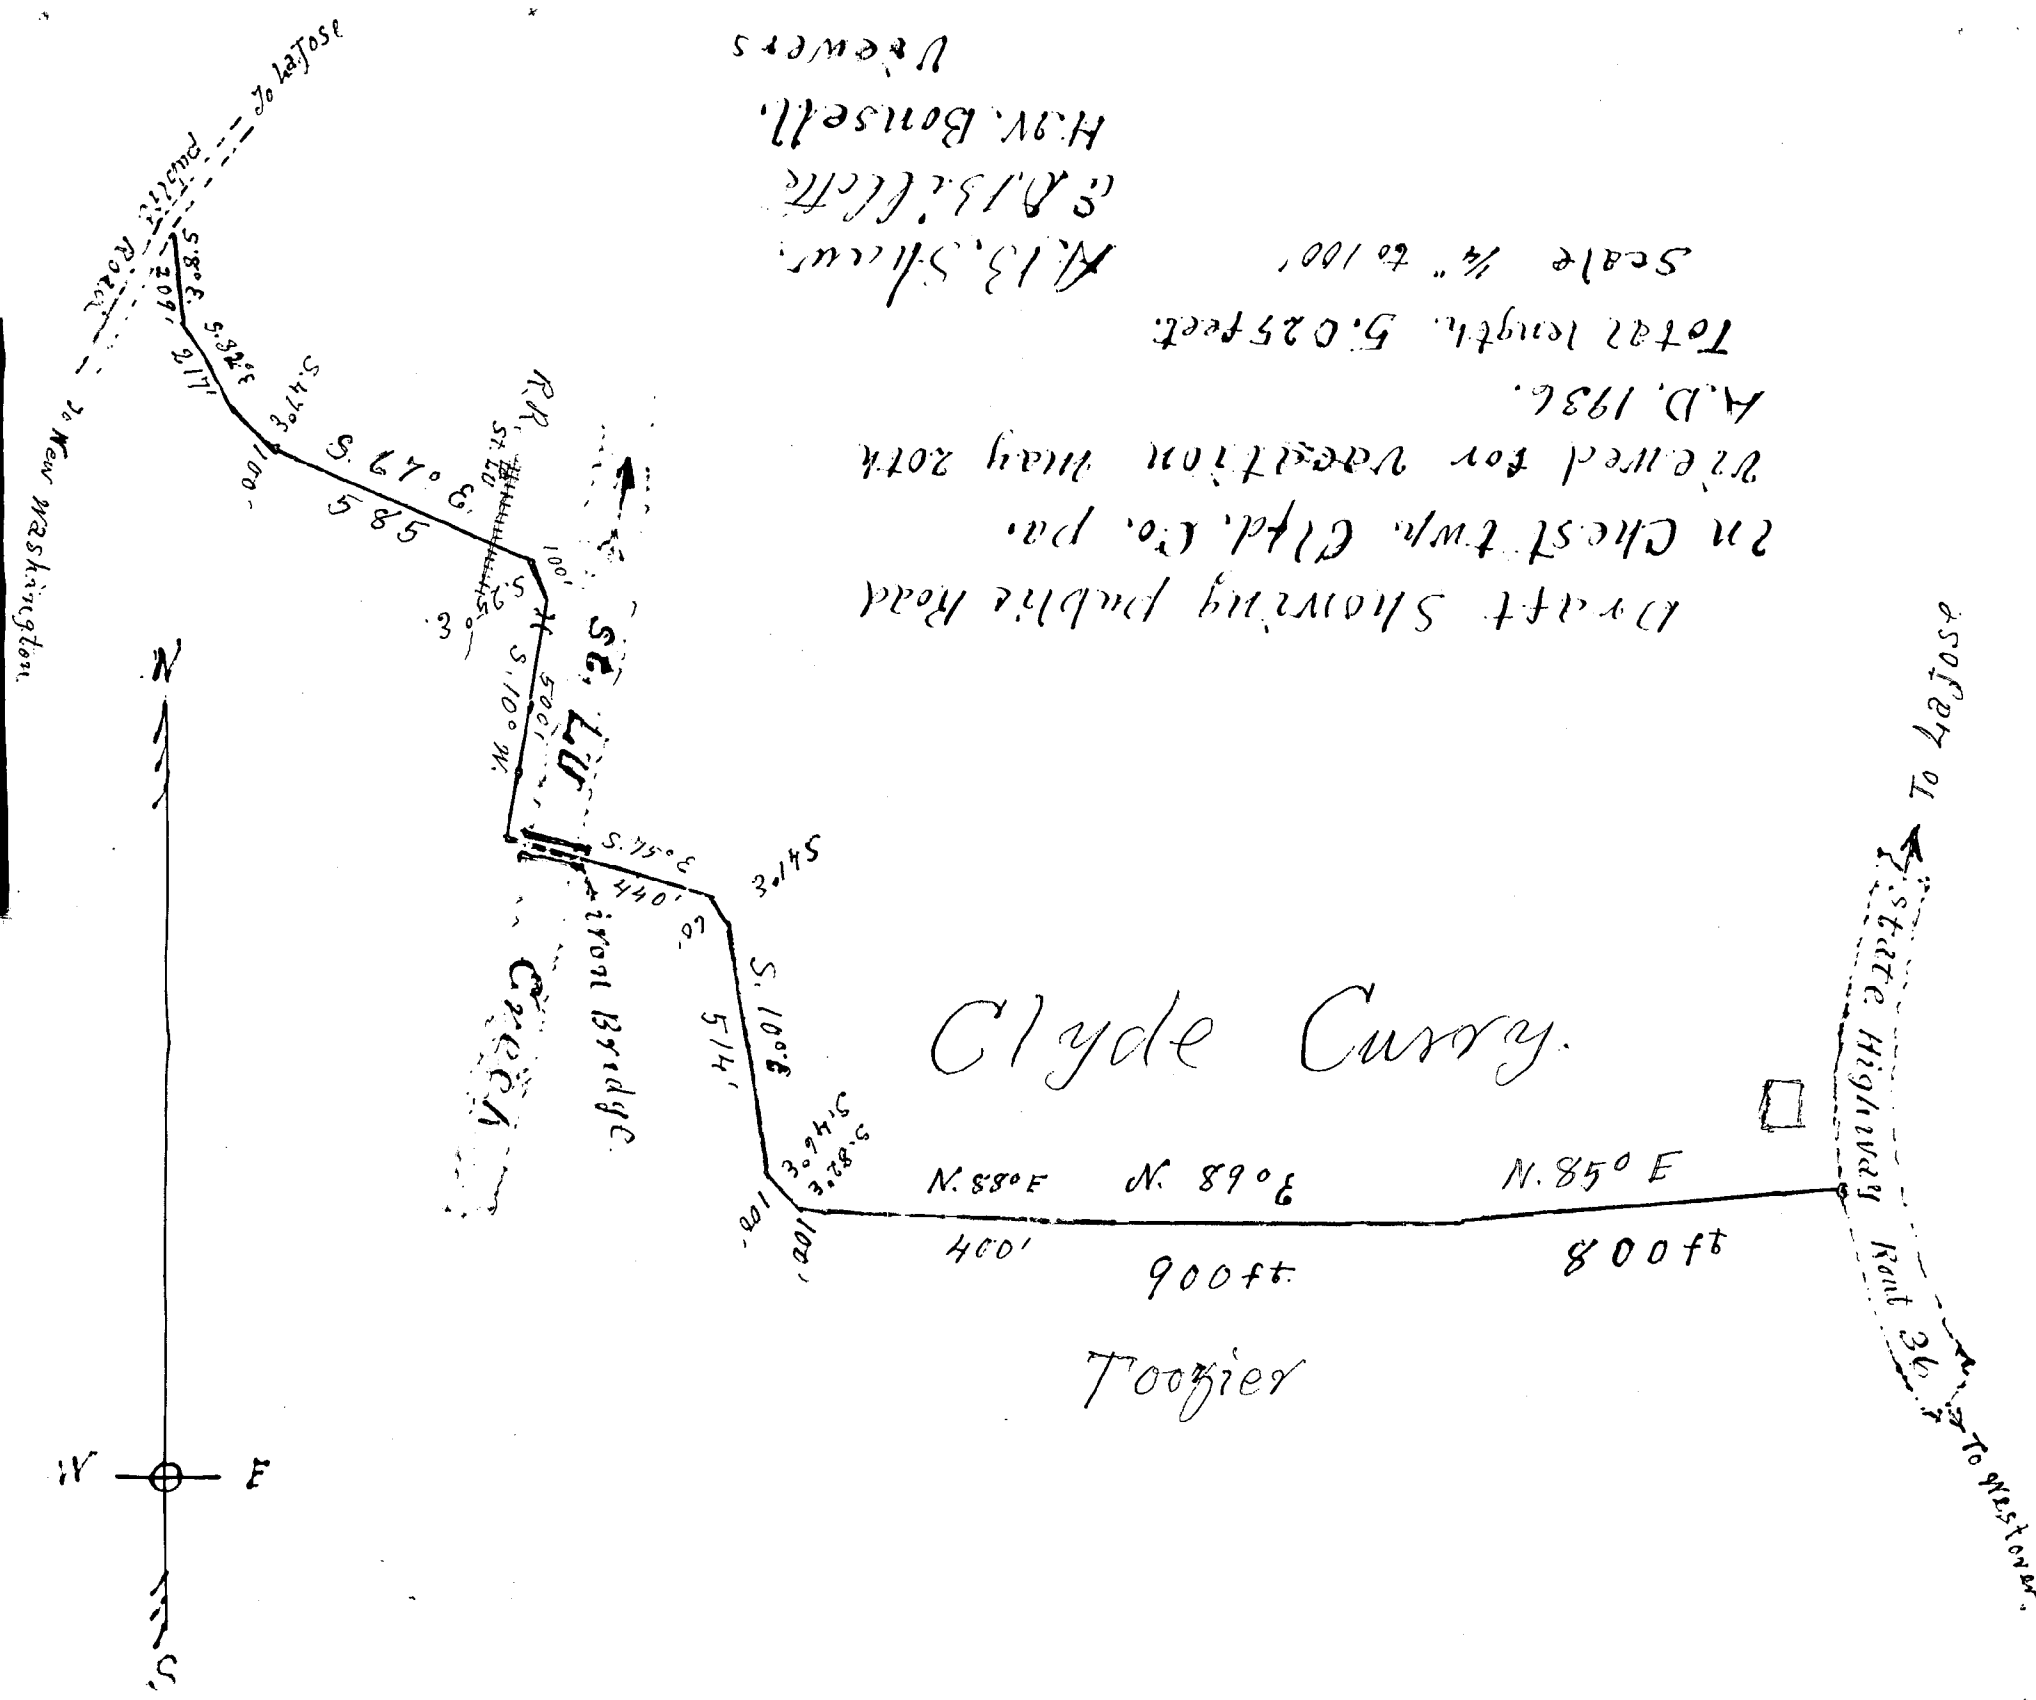 Draft Showing public Road
in Chest twp. Clfd. Co. pa.
viewed for vacation may 20th
A.D. 1936.
Total length. 5.025 feet.
Scale 1/4" to 100'
A.B. Shaw.
H.W. Bonsell.
Viewers
To LaJose
public Road
To New Washington
S.8°E.
209'
S.28°E
217'
S.47°E
100'
S. 67° E
585
R.R.
100'
S. 25° E.
S. 10° W.
500'
St. LU
Creek
iron Bridge
S.75°E
440'
S41°E
60'
S. 10° E
514'
S.46°E
100'
S.82°E
100'
N.88°E
400'
N. 89° E
900 ft.
N. 85° E
800 ft
Clyde Curry.
Toozier
To LaJose
State Highway Rout 36
To Westover.
N
W
E
S.